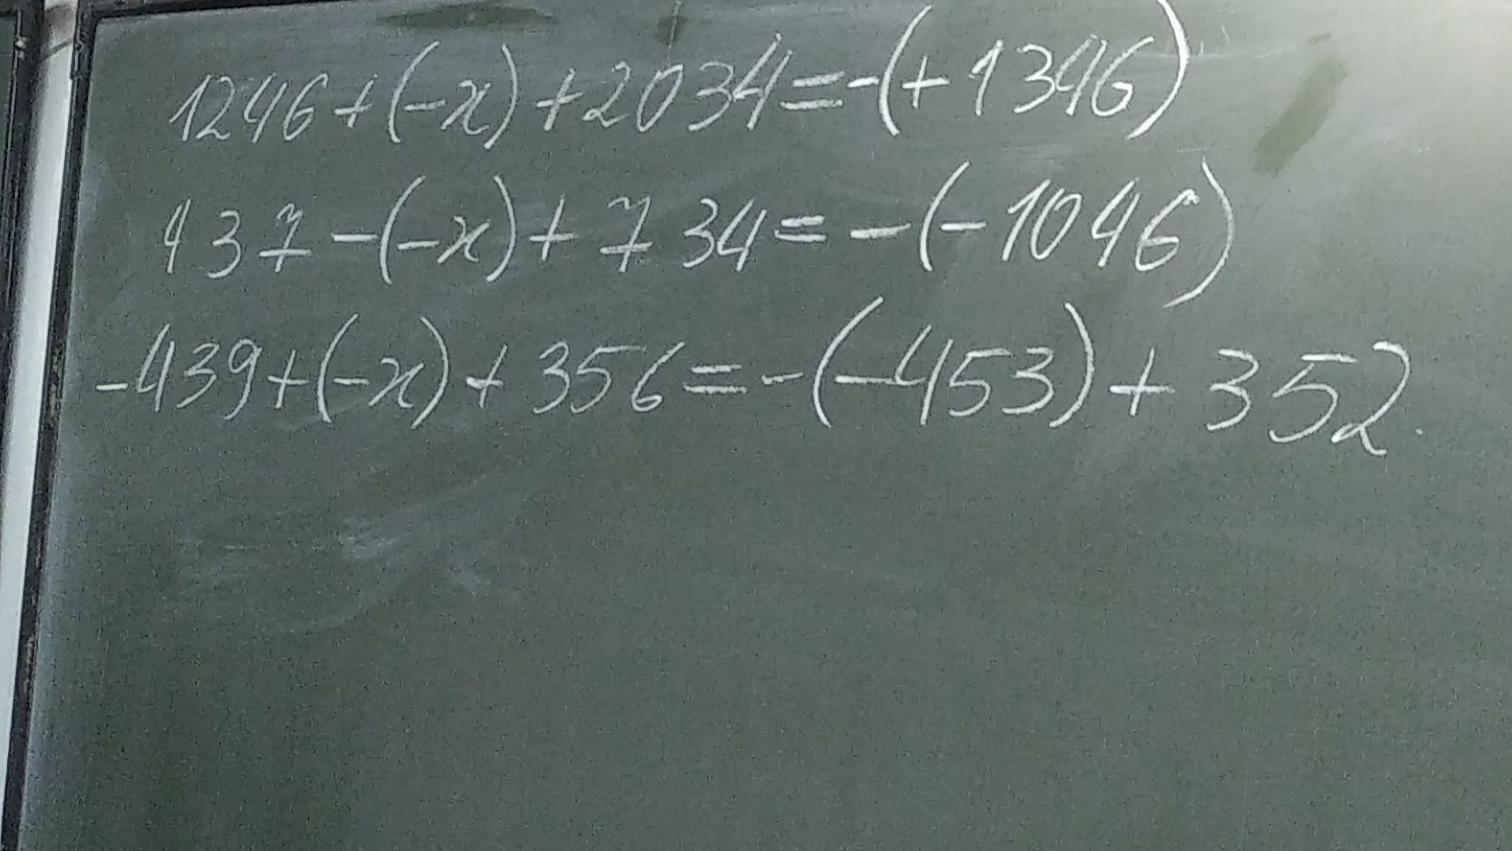 1246+(-x)+2034=-(+1346)
437-(-x)+734=-(-1046)
-439+(-x)+356=-(-453)+352.